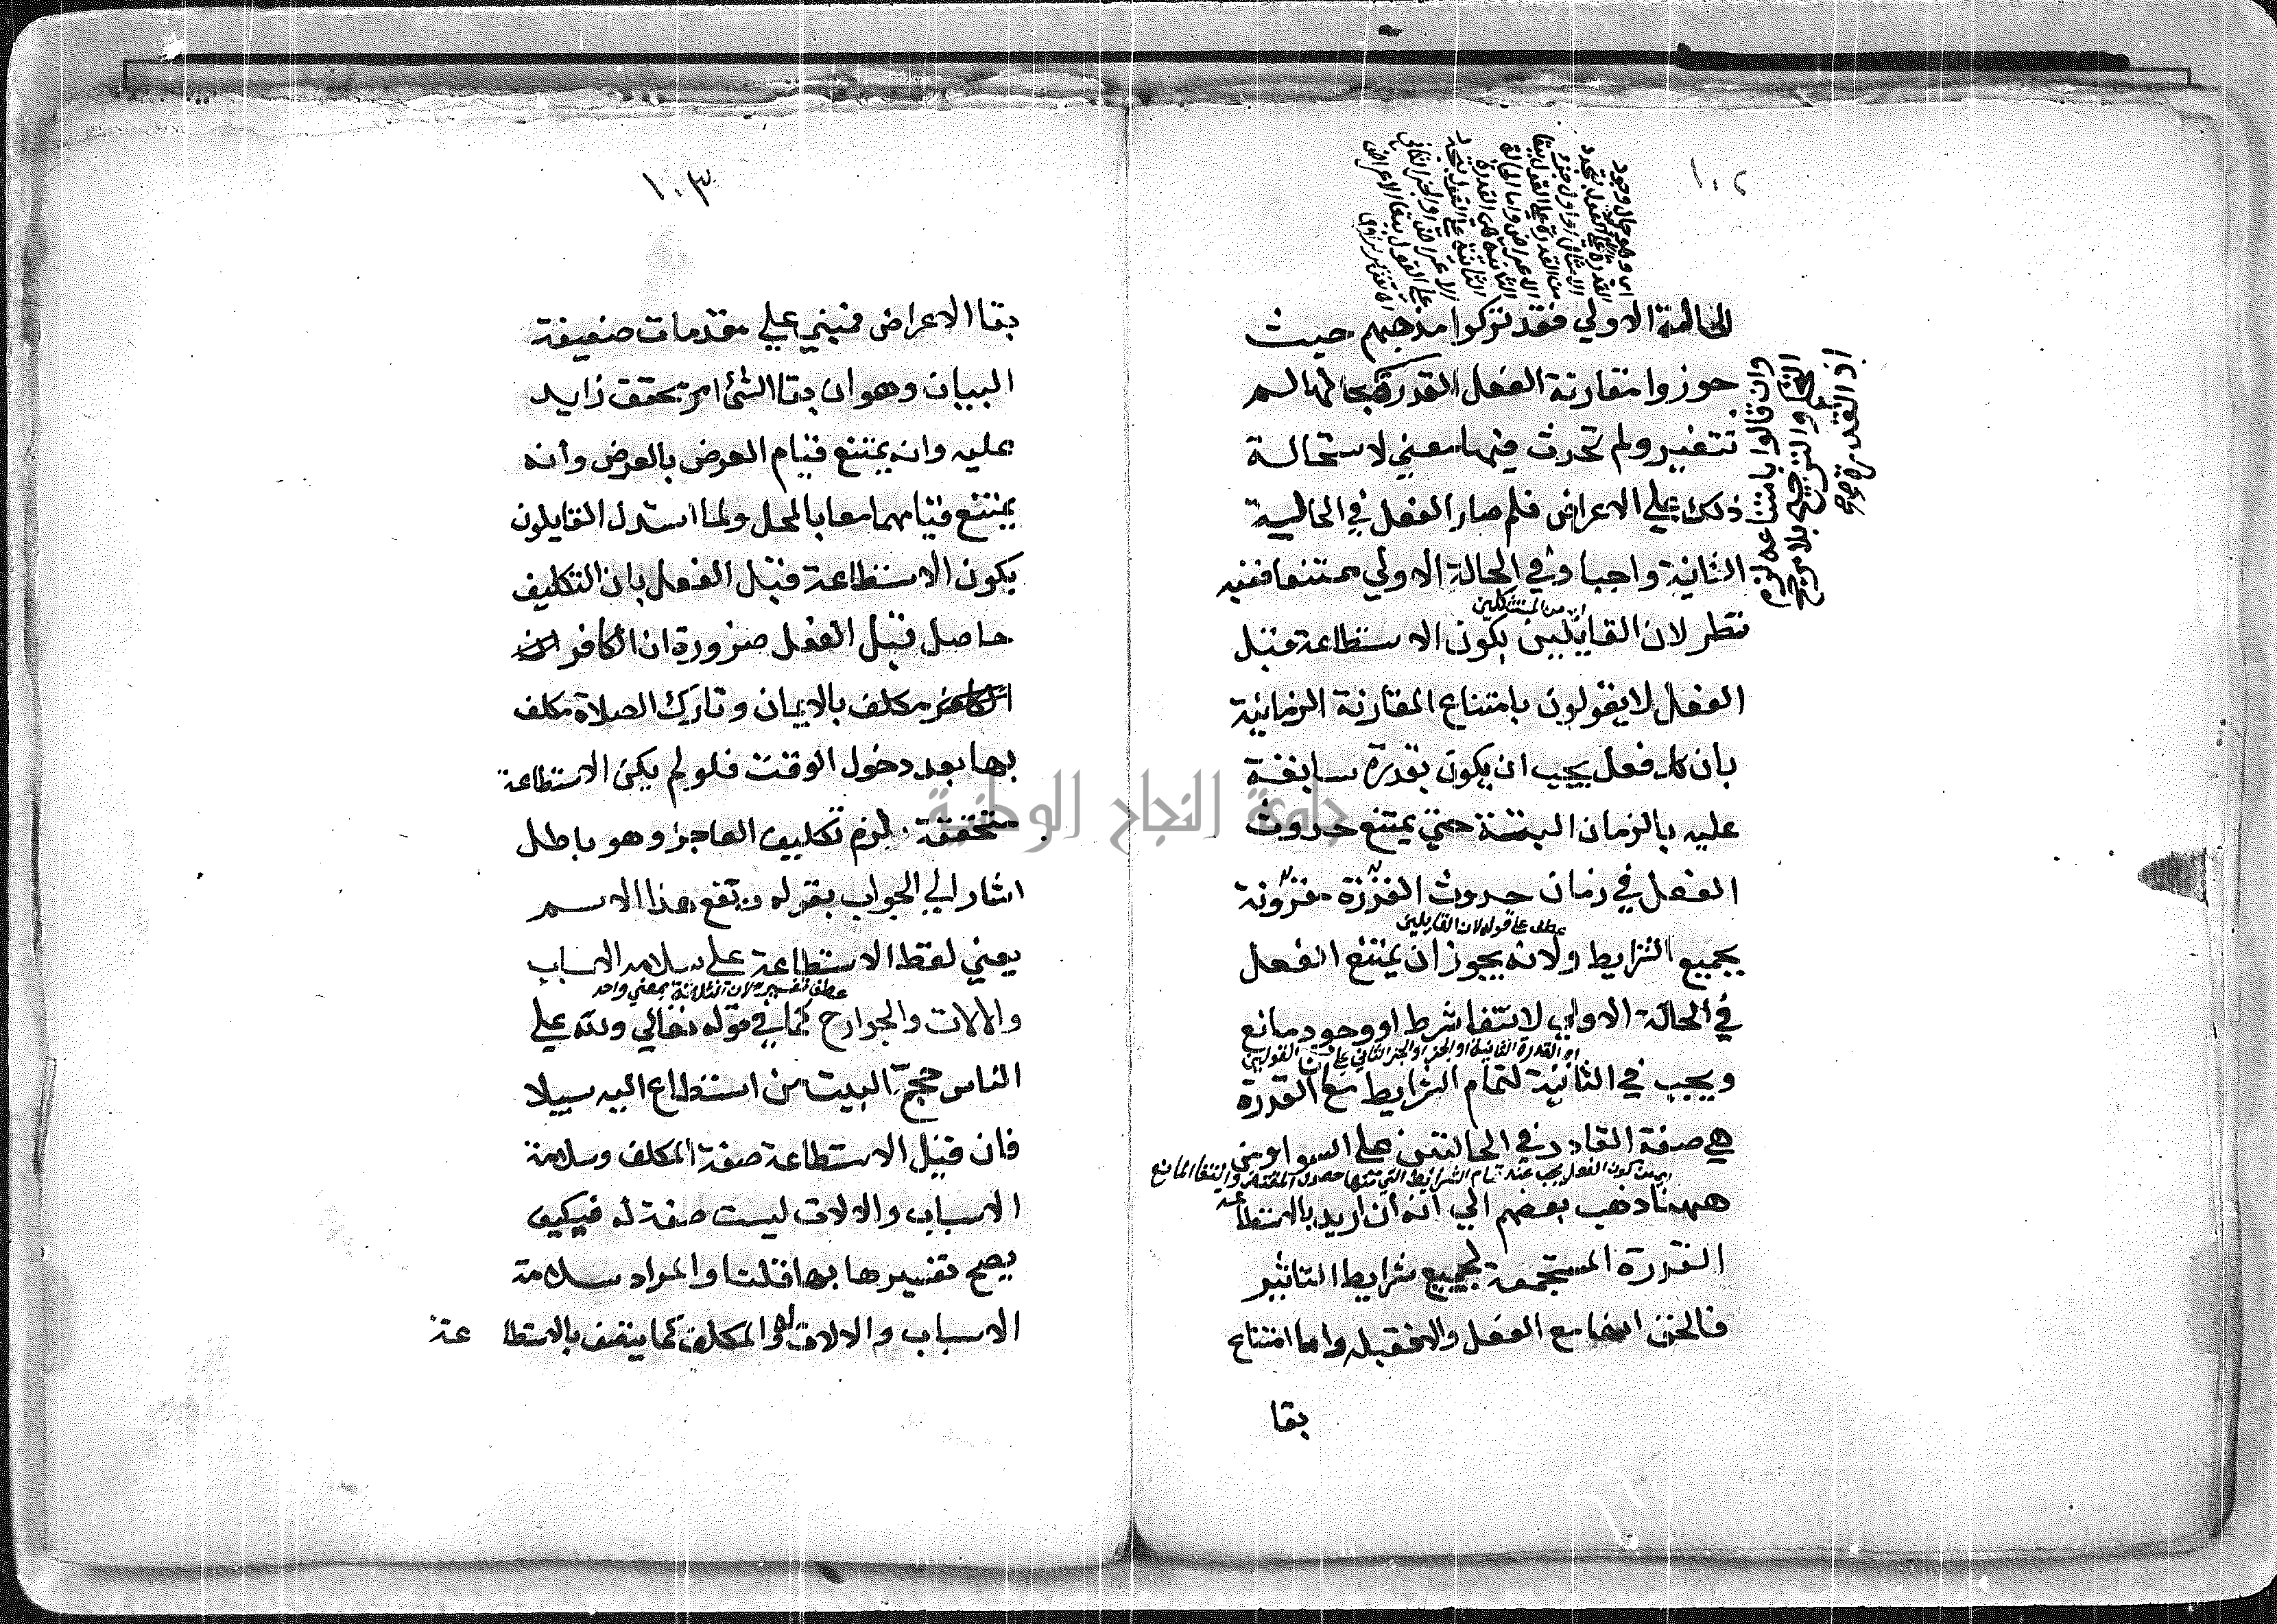 ١٠٢
الحالة الاولي فقد تركوا مذهبهم حيث
جوزوا مقارنة الفعل القدرة بحالها لم
تتغير ولم تحدث فيها معني لاستحالة
ذلك علي الاعراض فلم صار الفعل في الحالية
الثانية واجبا وفي الحالة الاولي ممتنعا ففيه
نظر لان القايلين بكون الاستطاعة قبل
الفعل لا يقولون بامتناع المقارنة الزمانية
بان كل فعل يجب ان يكون بقدرة سابقة
عليه بالزمان البتة حتي يمتنع حدوث
الفعل في زمان حدوث القدرة مقرونة
عطف علي قوله لان القايلين
بجميع الشرايط ولانه يجوز ان يمتنع الفعل
في الحالة الاولي لانتفا شرط او وجود مانع
ويجب في الثانية لتمام الشرايط مع القدرة
هي صفة القادر في الحالتين علي السوا ومن
ههنا ذهب بعضهم الي انه ان اريد بالاستطاعة
القدرة المستجمعة لجميع شرايط التاثير
فالحق انها مع الفعل والا فقبله واما امتناع
بقا
وان قالوا بامتناعه لزم
التحكم والترجيح بلا مرجح
اذ القدرة
١٠٣
بقا الاعراض فمبني علي مقدمات صعيفة
البيان وهو ان بقا الشئ امر محقق زايد
عليه وانه يمتنع قيام العرض بالعرض وأنه
يمتنع قيامهما معا بالمحل ولما استدل القايلون
بكون الاستطاعة قبل الفعل بان التكليف
حاصل قبل الفعل ضرورة ان الكافر
مكلف بالايمان وتارك الصلاة مكلف
بها بعد دخول الوقت فلو لم يكن الاستطاعة
متحققة لزم تكليف العاجز وهو باطل
اشار الي الجواب بقوله ويقع هذا الاسم
يعني لفظ الاستطاعة علي سلامة الاسباب
عطف تفسير لان الثلاثة بمعني واحد
والالات والجوارح كما في قوله تعالي ولله علي
الناس حج البيت من استطاع اليه سبيلا
فان قيل الاستطاعة صفة المكلف وسلامة
الاسباب والالات ليست صفة له فكيف
يصح تفسيرها بها قلنا والمراد سلامة
الاسباب والالات له والمكلف كما يتصف بالاستطاعة
جامعة النجاح الوطنية